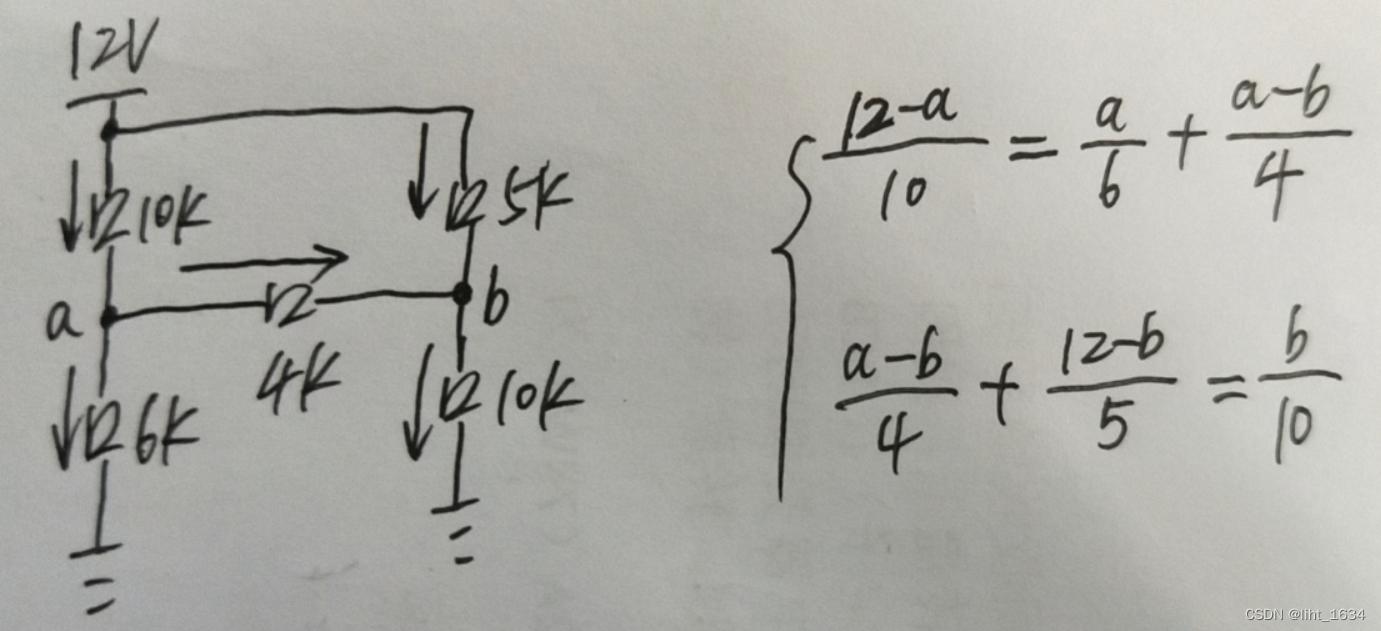 12V
10K
5K
a
b
4K
6K
10K
12-a/10 = a/6 + a-b/4
a-b/4 + 12-b/5 = b/10
CSDN @liht_1634